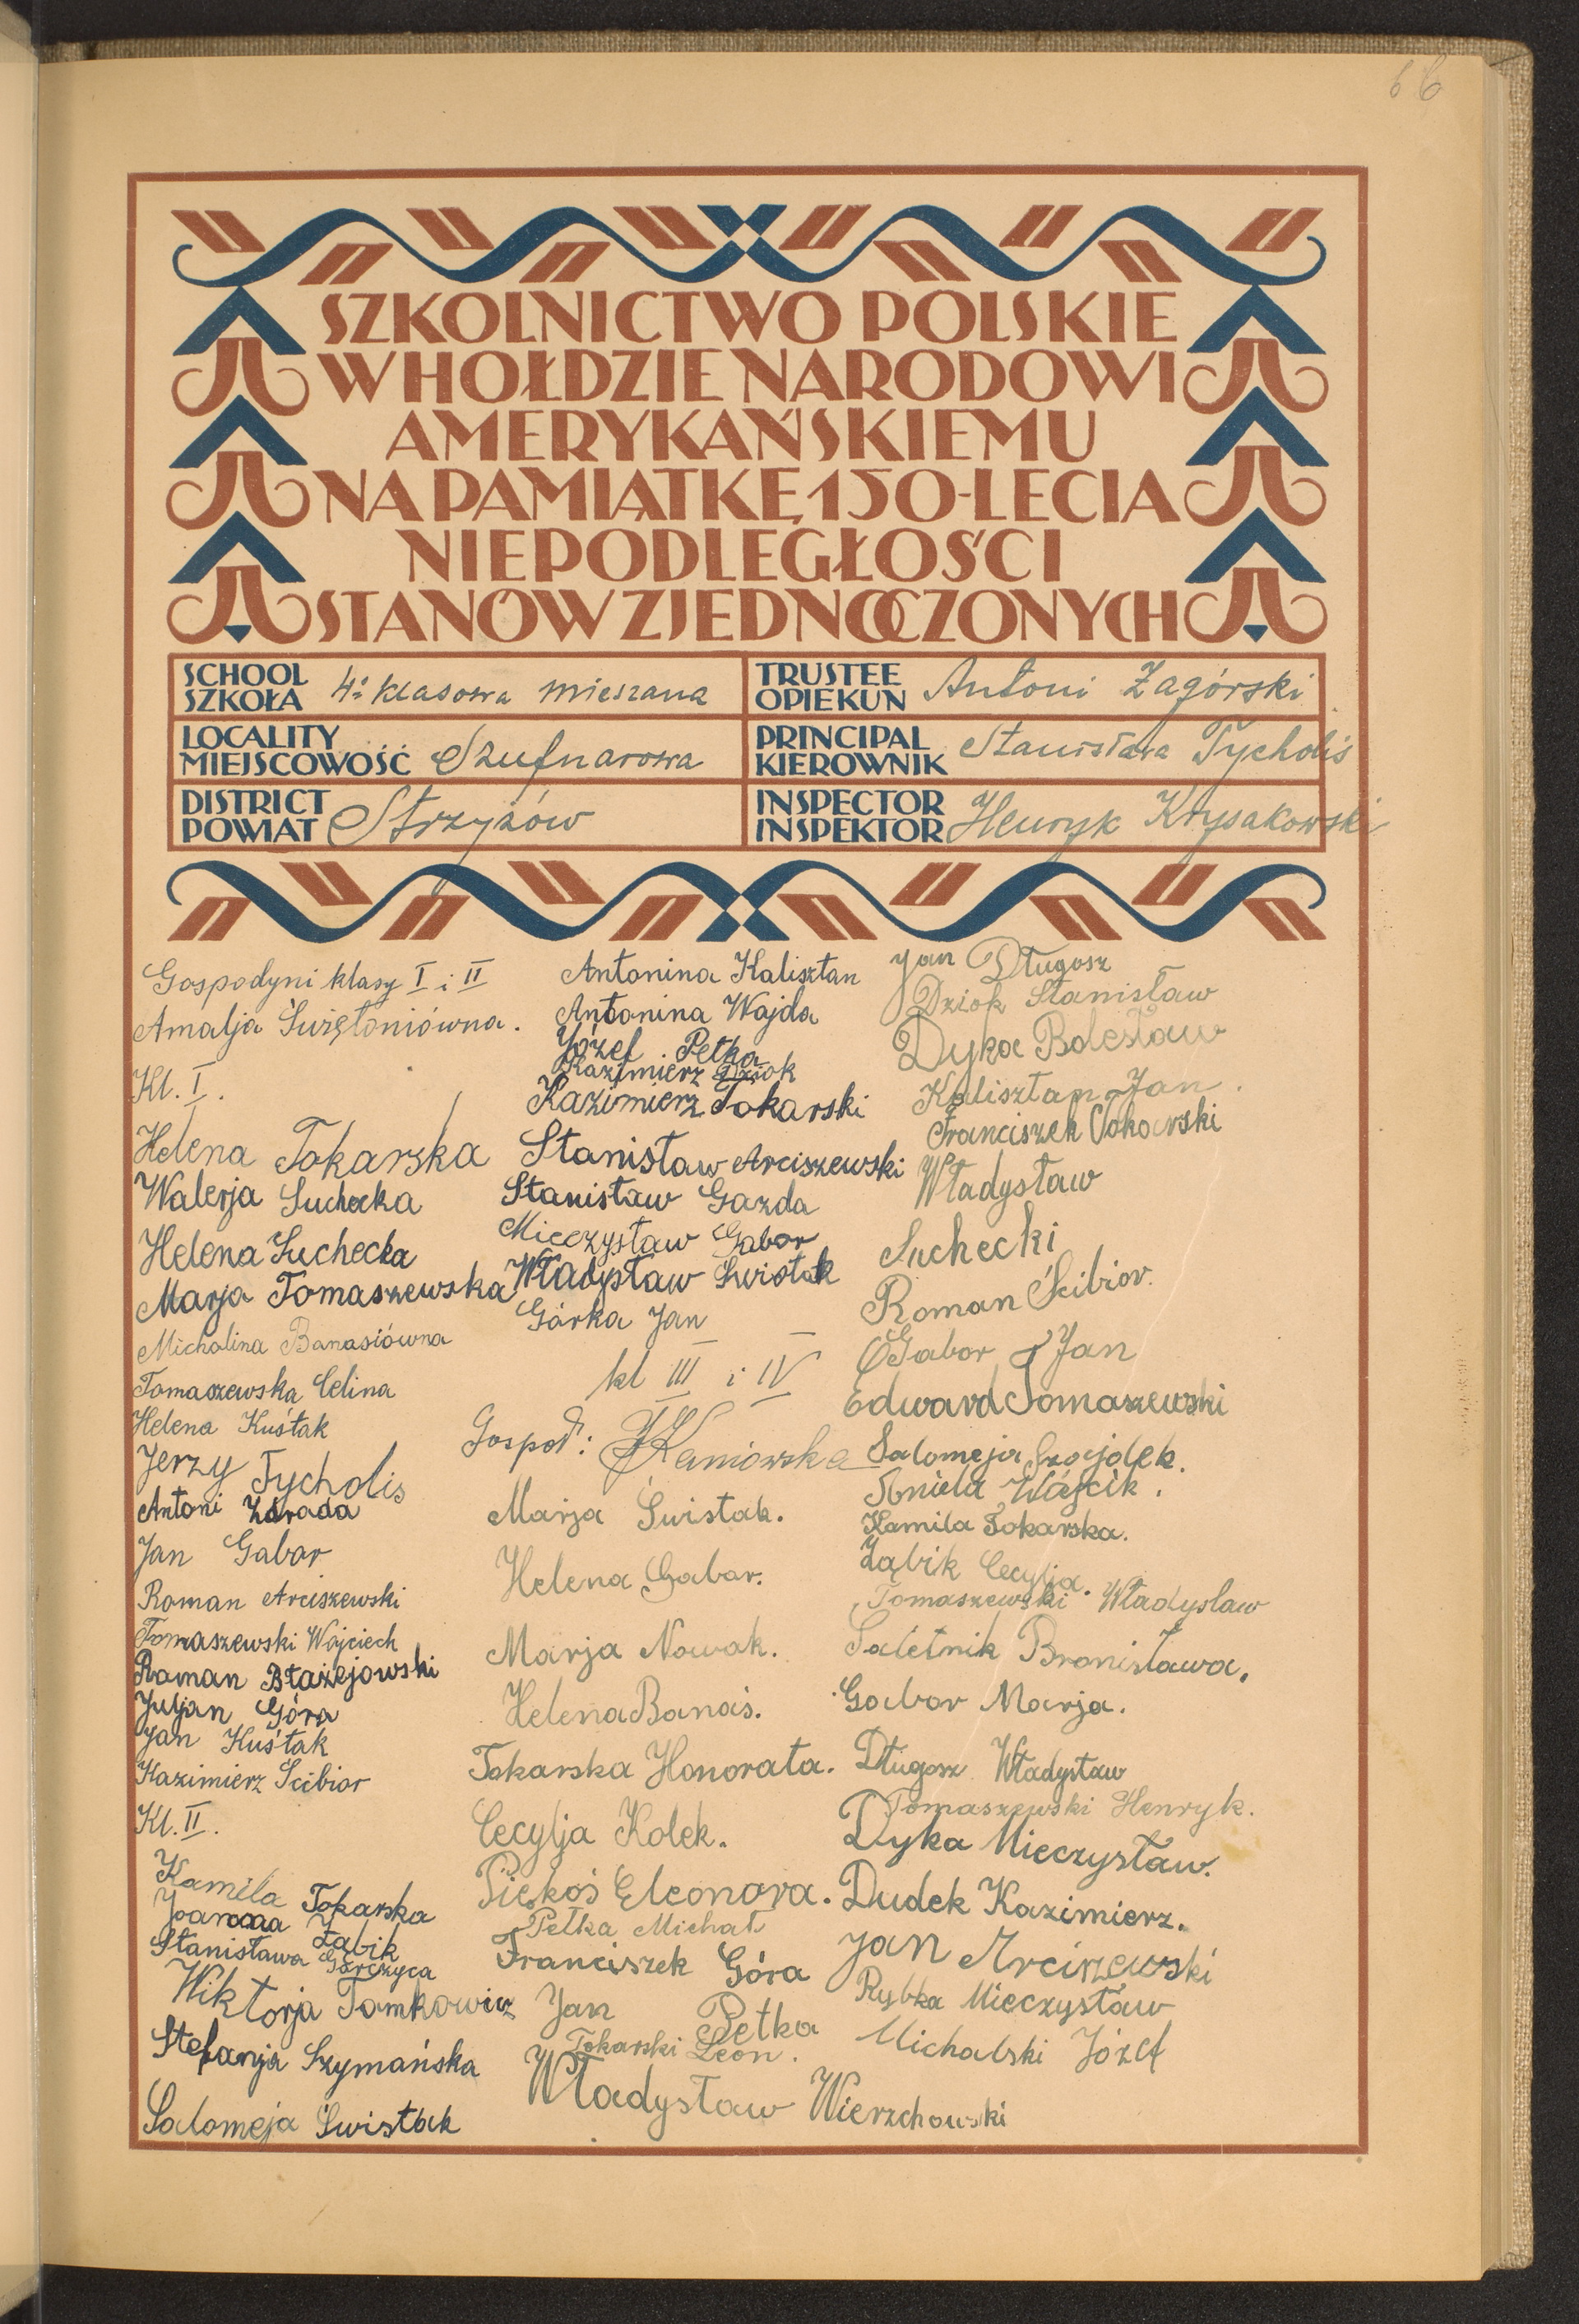 66
SZKOLNICTWO POLSKIE
W HOŁDZIE NARODOWI
AMERYKAŃSKIEMU
NA PAMIĄTKĘ 150-LECIA
NIEPODLEGŁOŚCI
STANÓW ZJEDNOCZONYCH
SCHOOL
SZKOŁA 4-klasowa mieszana
TRUSTEE
OPIEKUN Antoni Zagórski
LOCALITY
MIEJSCOWOŚĆ Szufnarowa
PRINCIPAL
KIEROWNIK Stanisława Tycholis
DISTRICT
POWIAT Strzyżów
INSPECTOR
INSPEKTOR Henryk Krysakowski
Gospodyni klasy I i II
Amalja Świętoniówna.
Kl. I.
Helena Tokarska
Walerja Suchecka
Helena Suchecka
Marja Tomaszewska
Michalina Banasiówna
Tomaszewska Celina
Helena Kuśtak
Jerzy Tycholis
Antoni
Jan Gabor
Roman Arciszewski
Tomaszewski Wojciech
Roman Błażejowski
Juljan Góra
Jan Kuśtak
Kazimierz Ścibior
Kl. II.
Kamila Tokarska
Joanna Ząbik
Stanisława Garczyca
Wiktorja Tomkowicz
Stefanja Szymańska
Salomeja Świstak
Antonina Kalisztan
Antonina Wajda
Józef Petka
Kazimierz Dziok
Kazimierz Tokarski
Stanisław Arciszewski
Stanisław Gazda
Mieczysław Gabor
Władysław Świstak
Górka Jan
kl III i IV
Gospod: Kaniowska
Marja Świstak.
Helena Gabor.
Marja Nowak.
Helena Banaś.
Tokarska Honorata.
Cecylja Kolek.
Piękoś Eleonora.
Petka Michał
Franciszek Góra
Jan Petka
Tokarski Leon.
Władysław Wierzchowski
Jan Długosz
Dziok Stanisław
Dyka Bolesław
Kalisztan Jan.
Franciszek Tokarski
Władysław
Suchecki
Roman Ścibior.
Gabor Jan
Edward Tomaszewski
Salomeja Szajdek.
Aniela Wójcik.
Kamila Tokarska.
Ząbik Cecylja.
Tomaszewski Władysław
Saletnik Bronisława.
Gabor Marja.
Długosz Władysław
Tomaszewski Henryk.
Dyka Mieczysław.
Dudek Kazimierz.
Jan Arciszewski
Rybka Mieczysław
Michalski Józef